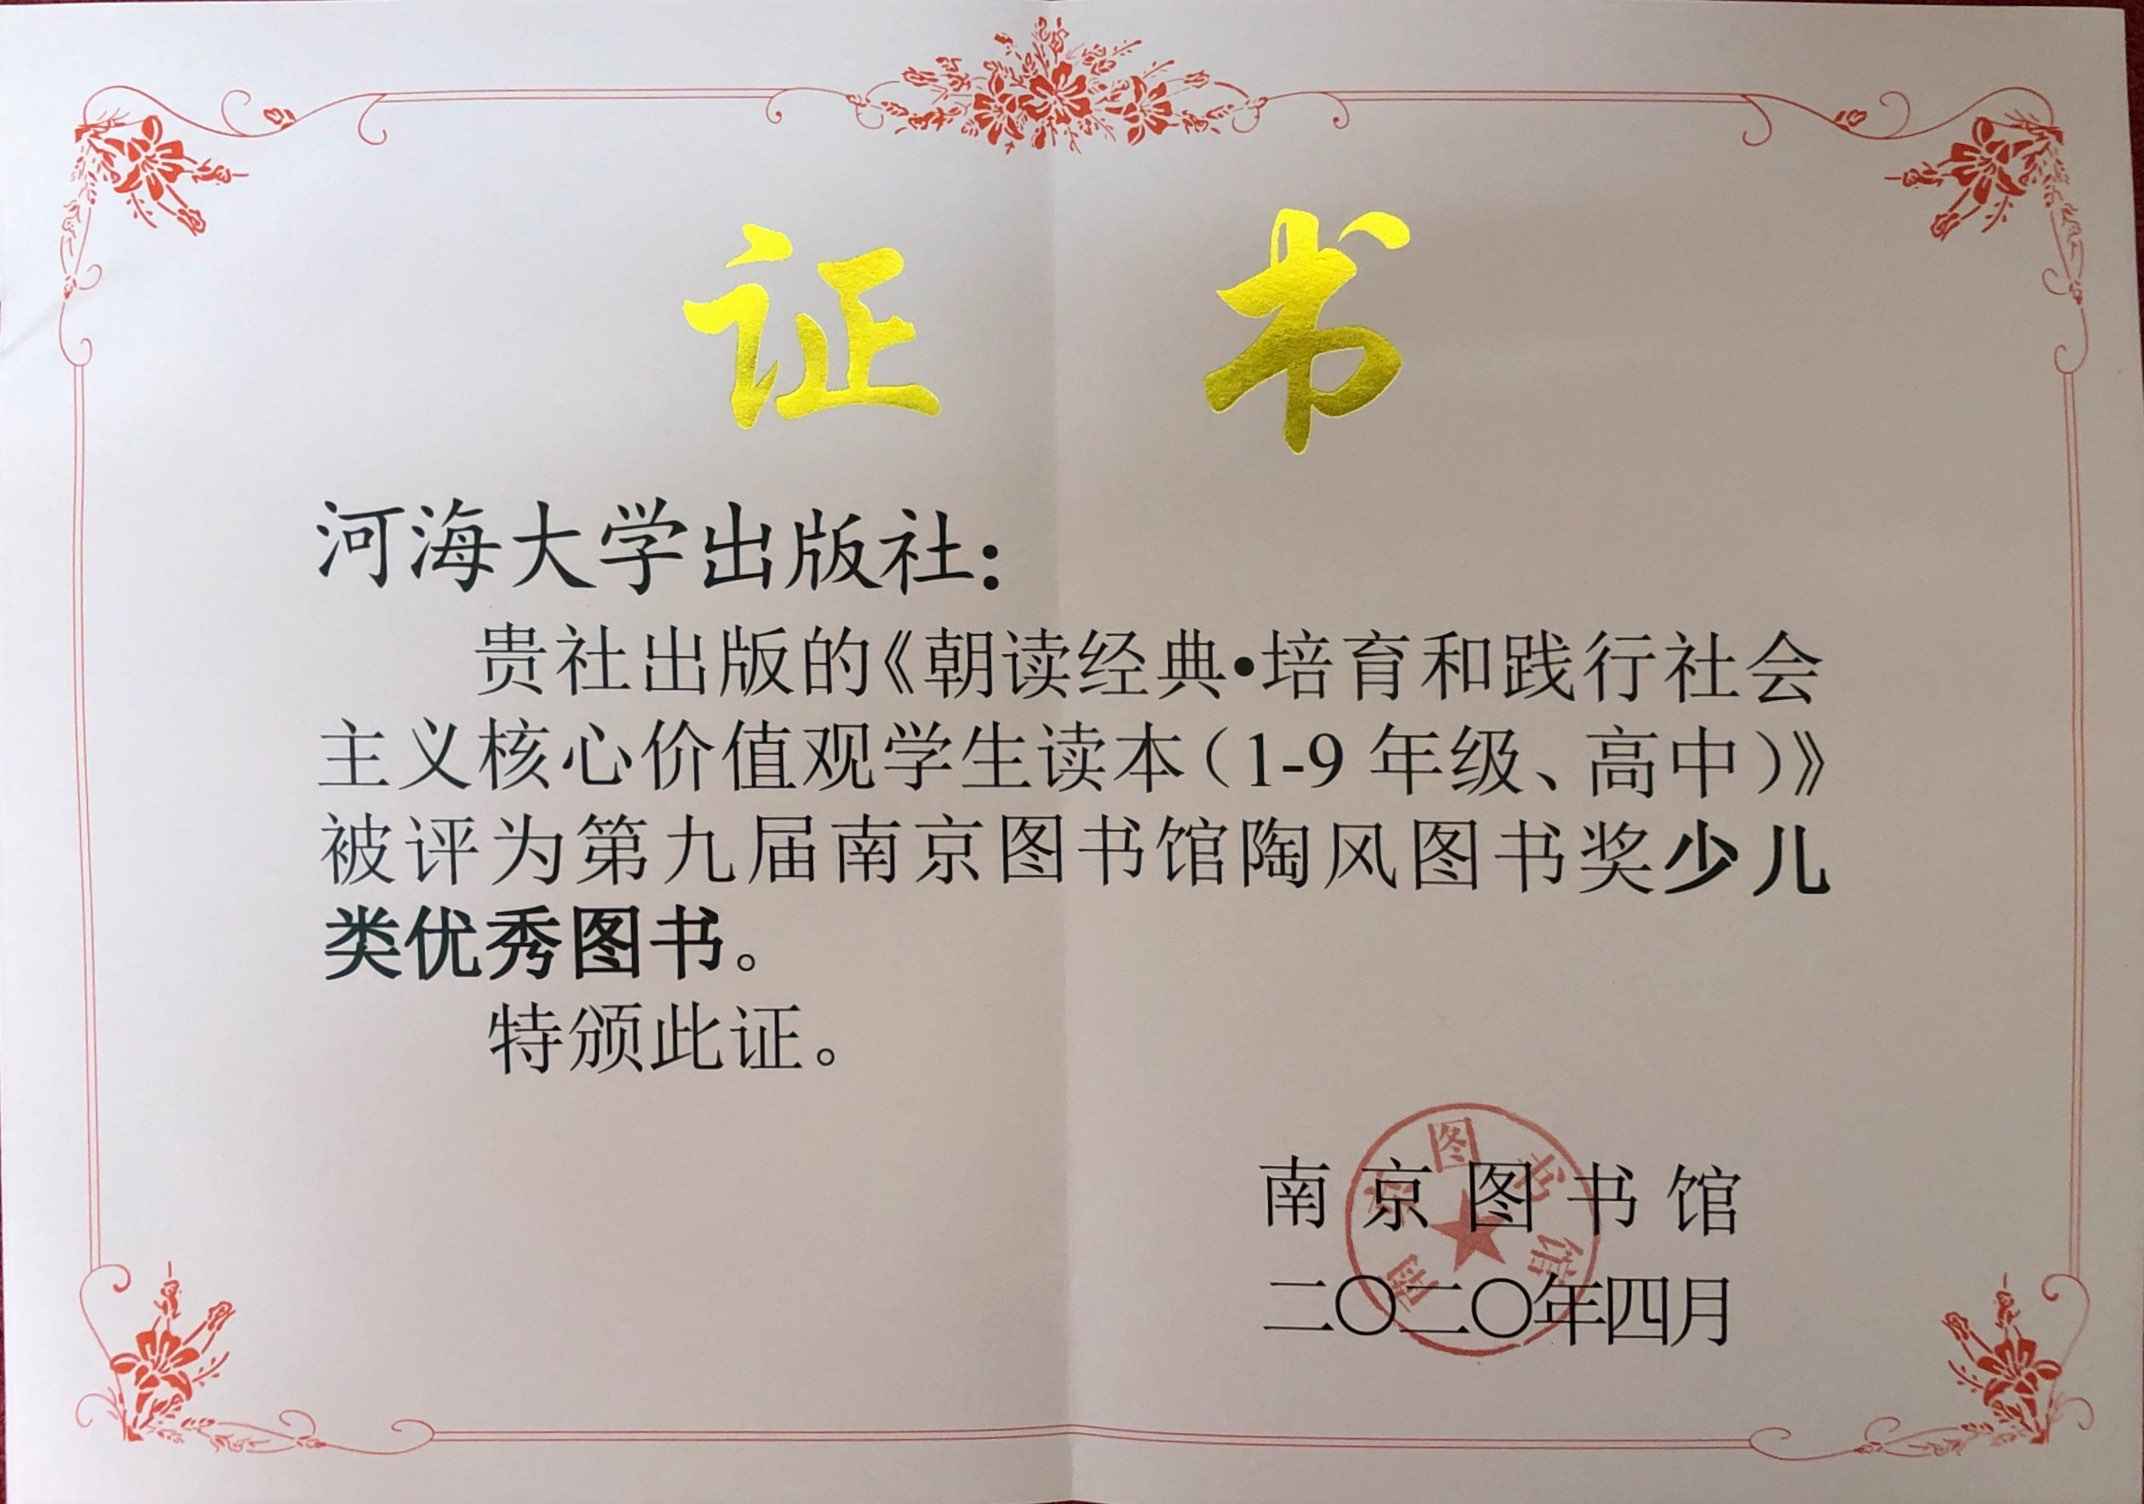 证书
河海大学出版社：
贵社出版的《朝读经典•培育和践行社会
主义核心价值观学生读本（1-9年级、高中）》
被评为第九届南京图书馆陶风图书奖少儿
类优秀图书。
特颁此证。
南京图书馆
二〇二〇年四月
南京图书馆